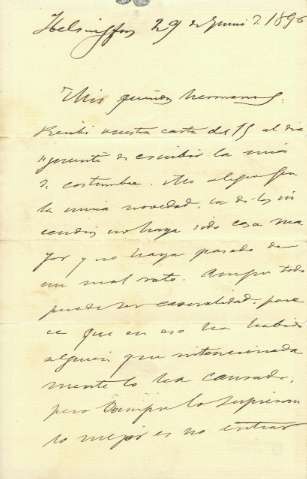 Helsingfors 29 de Junio de 1896
Mis queridos hermanos,
Recibí vuestra carta del 15 al dia
siguiente de escribir la mia
de costumbre. Me alegro que
la unica novedad, la de los in
cendios no haya sido cosa ma
yor y no haya pasado de
un mal rato. Aunque todo
puede ser casualidad, pare
ce que en eso ha habido
alguien que intencionada
mente lo ha causado,
pero aunque lo
lo mejor es no entrar